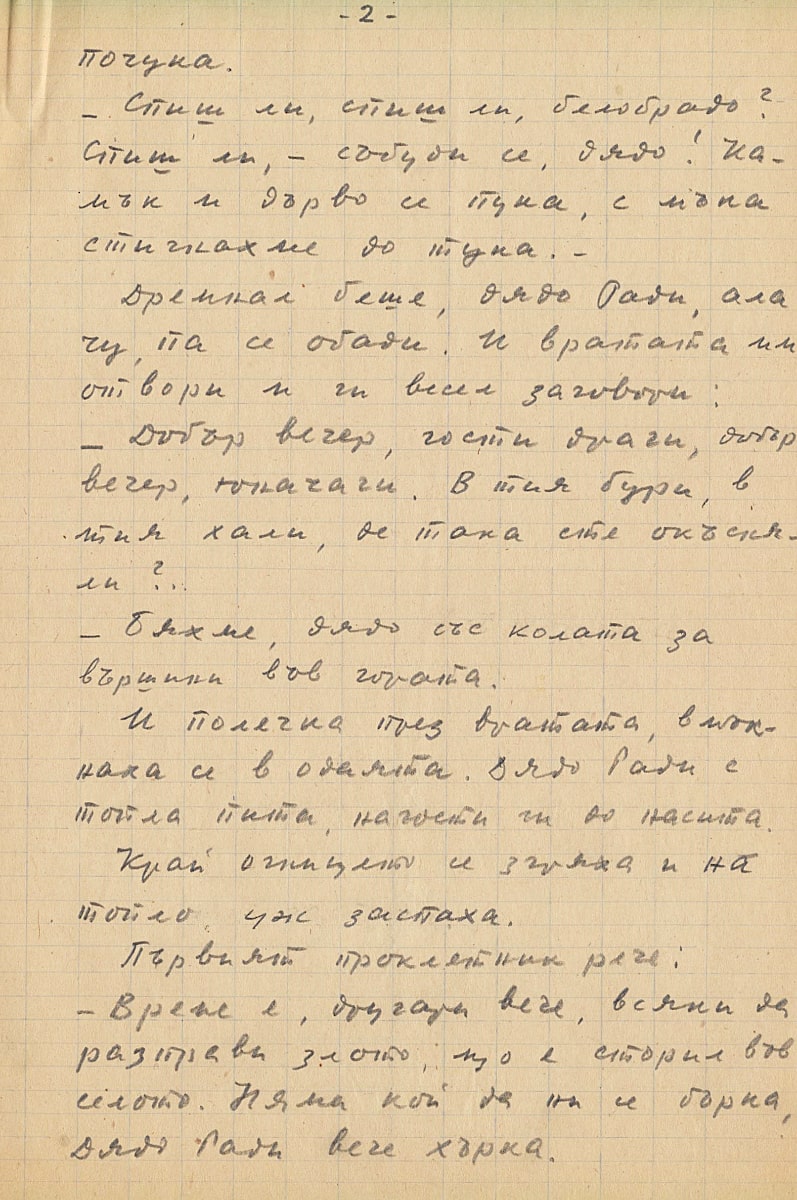 - 2 -
почука.
– Спиш ли, спиш ли, белобрадо?
Спиш ли, – събуди се, дядо! Ка-
мък и дърво се пука, с мъка
стигнахме до тука. –
Дремнал беше, дядо Ради, ала
чу, па се обади. И вратата им
отвори и ги весел заговори:
– Добър вечер, гости драги, добър
вечер, юначаги. В тия бури, в
тия хали, де така сте окъсня-
ли?..
– Бяхме, дядо със колата за
вършини във гората.
И полечка през вратата, вмък-
наха се в одаята. Дядо Ради с
топла пита, нагости ги до насита.
Край огнището се згряха и на
топло уж заспаха.
Първият проклетник рече:
– Време е, другари вече, всяки да
разправи злото, що е сторил във
селото. Няма кой да ни се бърка,
Дядо Ради вече хърка.